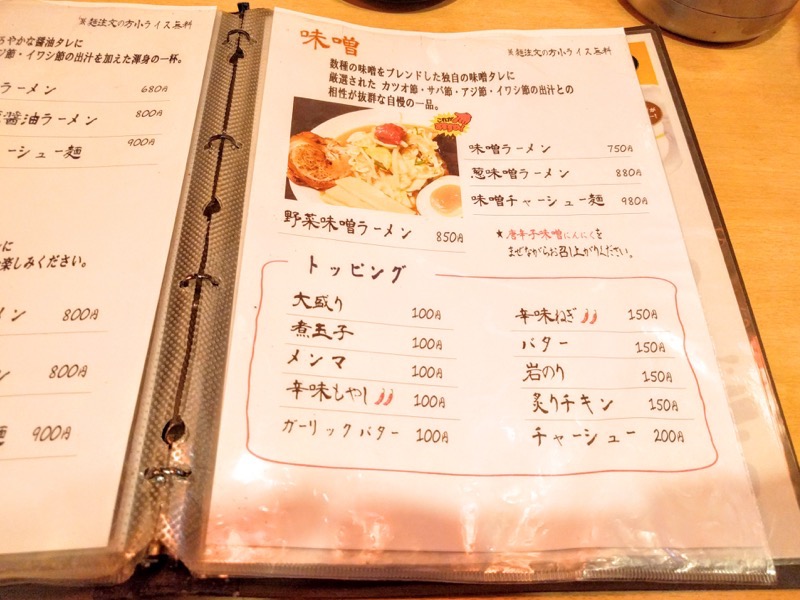 ※麺注文の方小ライス無料
ろやかな醤油タレに
節・イワシ節の出汁を加えた渾身の一杯。
ラーメン 680円
醤油ラーメン 800円
ーシュー麺 900円
に
楽しみください。
メン 800円
ン 800円
麺 900円
味噌
※麺注文の方小ライス無料
数種の味噌をブレンドした独自の味噌タレに
厳選された カツオ節・サバ節・アジ節・イワシ節の出汁との
相性が抜群な自慢の一品。
味噌ラーメン 750円
葱味噌ラーメン 880円
味噌チャーシュー麺 980円
野菜味噌ラーメン 850円
★唐辛子味噌にんにくを
まぜながらお召し上がりください。
トッピング
大盛り 100円
煮玉子 100円
メンマ 100円
辛味もやし 100円
ガーリックバター 100円
辛味ねぎ 150円
バター 150円
岩のり 150円
炙りチキン 150円
チャーシュー 200円